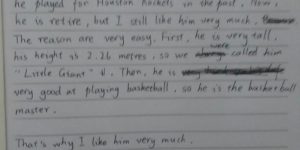 he played for Houston Rockets in the past. Now,
he is retire, but I still like him very much.
The reason are very easy. First, he is very tall,
his height is 2.26 metres, so we were called him
"Little Giant". Then, he is
very good at playing basketball, so he is the basketball
master.
That's why I like him very much.